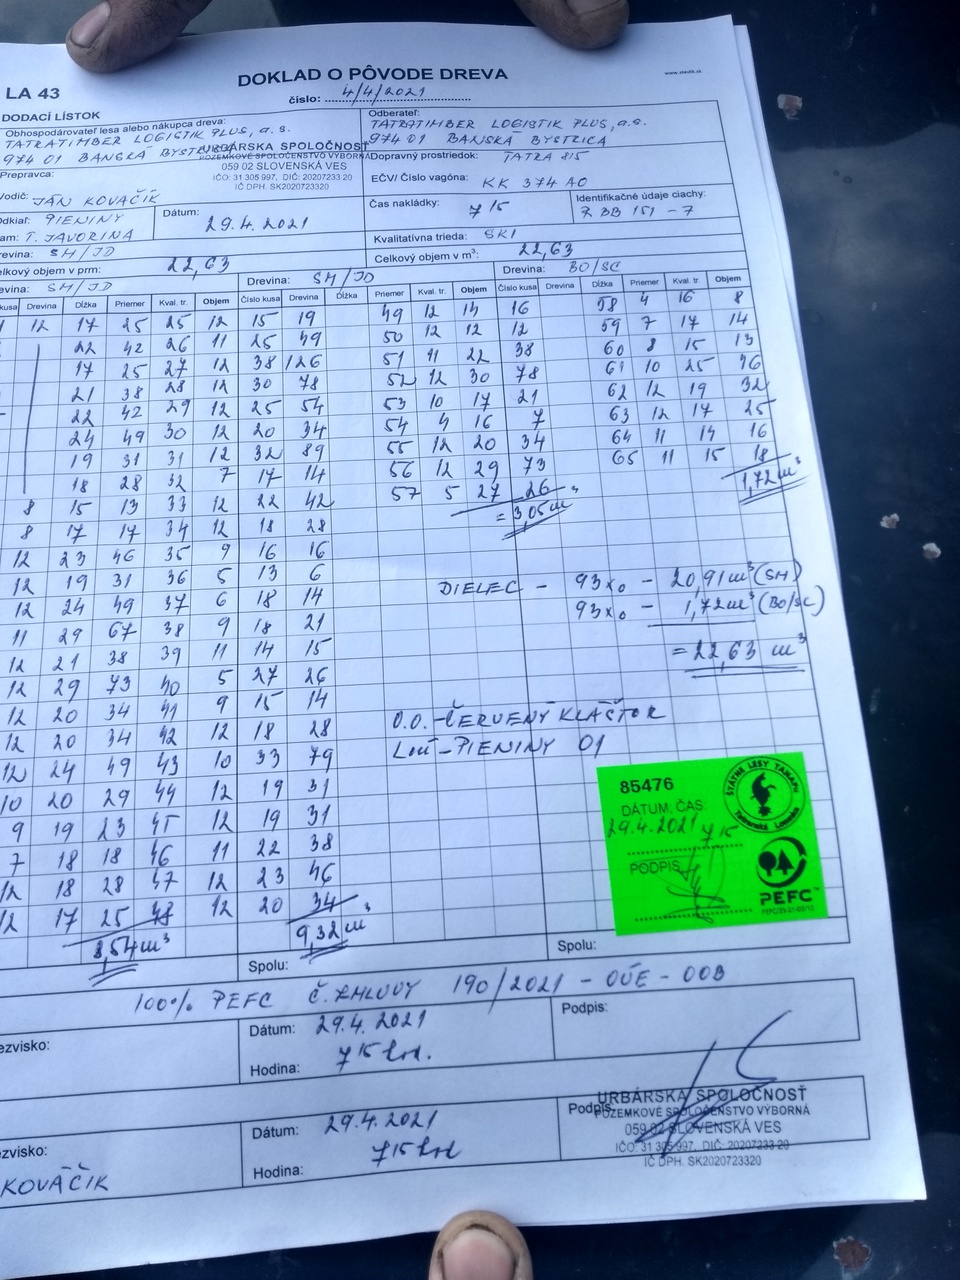 LA 43
DOKLAD O PÔVODE DREVA
www.slavtik.sk
číslo: 4/4/2021
DODACÍ LÍSTOK
Obhospodárovateľ lesa alebo nákupca dreva:
TATRATIMBER LOGISTIK PLUS, a.s.
974 01 BANSKÁ
URBÁRSKA SPOLOČNOSŤ
POZEMKOVÉ SPOLOČENSTVO VÝBORNÁ
059 02 SLOVENSKÁ VES
IČO: 31 305 997, DIČ: 20207233 20
IČ DPH. SK2020723320
Odberateľ:
TATRATIMBER LOGISTIK PLUS, a.s.
974 01 BANSKÁ BYSTRICA
Prepravca:
Dopravný prostriedok: TATRA 815
Vodič: JÁN KOVAČÍK
EČV/ Číslo vagóna: KK 374 AO
Odkiaľ: PIENINY
Dátum: 29.4.2021
Čas nakládky: 7 15
Identifikačné údaje ciachy:
am: T. JAVORINA
Kvalitatívna trieda:
revina: SM/JD
elkový objem v prm: 22,63
Celkový objem v m³: 22,63
evina: SM/JD
Drevina: SM/JD
Drevina: BO/SC
kusa Drevina Dĺžka Priemer Kval. tr. Objem Číslo kusa Drevina Dĺžka Priemer Kval. tr. Objem Číslo kusa Drevina Dĺžka Priemer Kval. tr. Objem
12 17 25 25 12 15 19 49 12 14 16 58 4 16 8
22 42 26 11 25 49 50 12 12 12 59 7 17 14
17 25 27 12 38 126 51 11 22 38 60 8 15 13
21 38 28 12 30 78 52 12 30 78 61 10 25 46
22 42 29 12 25 54 53 10 17 21 62 12 19 32
24 49 30 12 20 34 54 4 16 7 63 12 17 25
19 31 31 12 32 89 55 12 20 34 64 11 14 16
18 28 32 7 17 14 56 12 29 73 65 11 15 18
8 15 13 33 12 22 42 57 5 27 26 1,72 m³
8 17 17 34 12 18 28 = 3,05 m³
12 23 46 35 9 16 16
12 19 31 36 5 13 6
12 24 49 37 6 18 14
11 29 67 38 9 18 21
12 21 38 39 11 14 15
12 29 73 40 5 27 26
12 20 34 41 9 15 14
12 20 34 42 12 18 28
12 24 49 43 10 33 79
10 20 29 44 12 19 31
9 19 23 45 12 19 31
7 18 18 46 11 22 38
12 18 28 47 12 23 46
12 17 25 48 12 20 34
8,54 m³ 9,32 m³
DIELEC - 93x0 - 20,91 m³ (SM)
93x0 - 1,72 m³ (BO/SC)
= 22,63 m³
O.O. - ČERVENÝ KLÁŠTOR
PIENINY 01
85476
ŠTÁTNE LESY TANAPU
Tatranská Lomnica
DÁTUM, ČAS
29.4.2021 7 15
PODPIS
PEFC
Spolu:
Spolu:
100% PEFC Č. ZMLUVY 190/2021 - OÚE - OOB
ezvisko:
Dátum: 29.4.2021
Hodina: 7 15 hod.
Podpis:
ezvisko:
KOVÁČIK
Dátum: 29.4.2021
Hodina: 7 15 hod
Podpis:
URBÁRSKA SPOLOČNOSŤ
POZEMKOVÉ SPOLOČENSTVO VÝBORNÁ
059 02 SLOVENSKÁ VES
IČO: 31 305 997, DIČ: 20207233 20
IČ DPH. SK2020723320